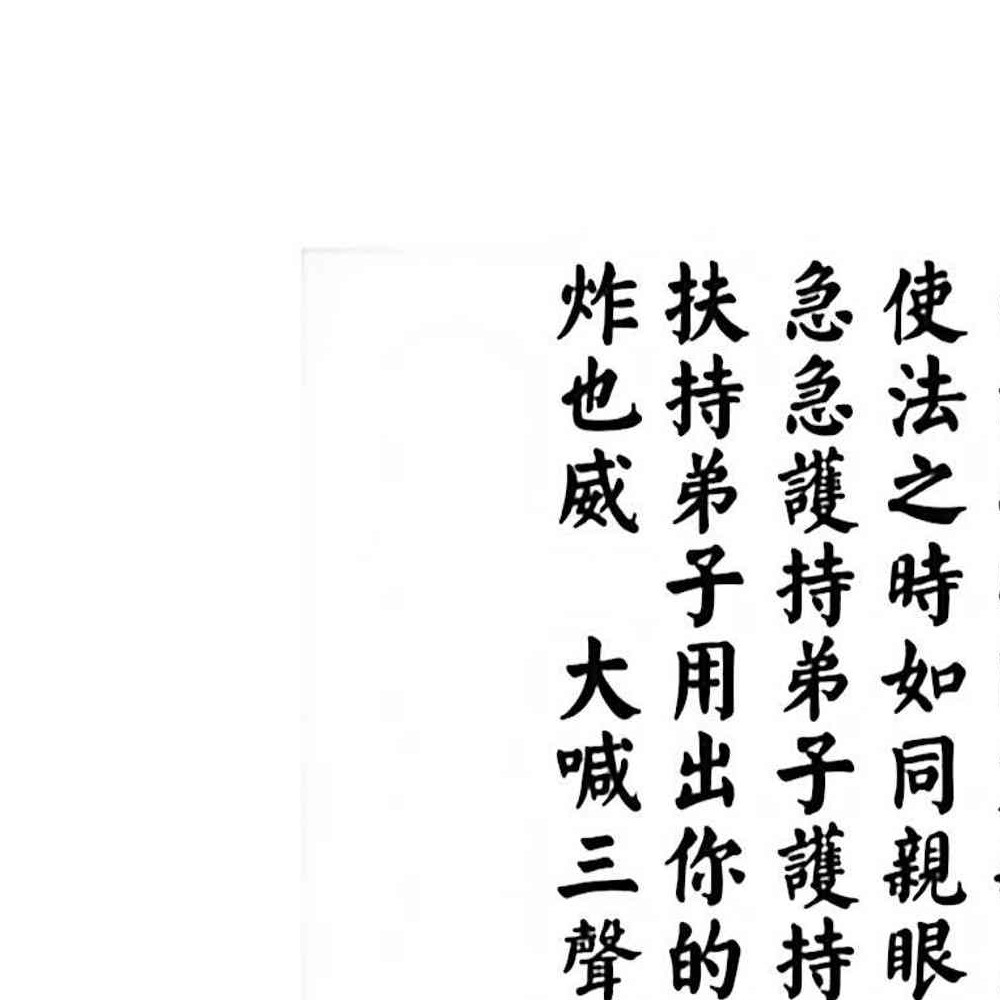 使法之時如同親眼
急急護持弟子護持
扶持弟子用出你的
炸也威　大喊三聲